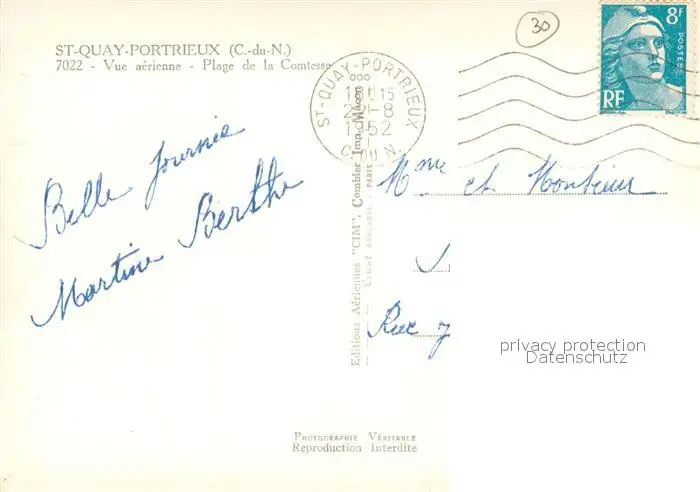 30
8F
POSTES
RF
ST-QUAY-PORTRIEUX (C.-du-N.)
7022 - Vue aérienne - Plage de la Comtesse
ST-QUAY-PORTRIEUX
1952
C. DU N.
Belle journée
Martine Berthe
Editions Aériennes "CIM", Combier Imp. Mâcon
PARIS
Mme et Monsieur
Rue
privacy protection
Datenschutz
PHOTOGRAPHIE VÉRITABLE
Reproduction Interdite